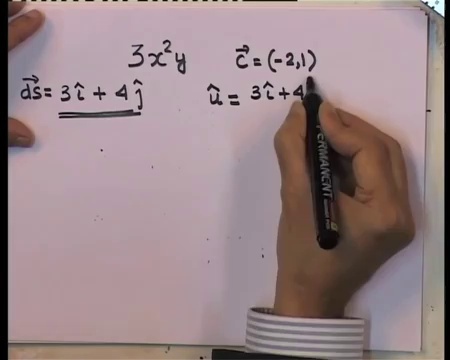 3x²y
c⃗ = (-2,1)
d⃗s = 3î + 4ĵ
û = 3î + 4
PERMANENT